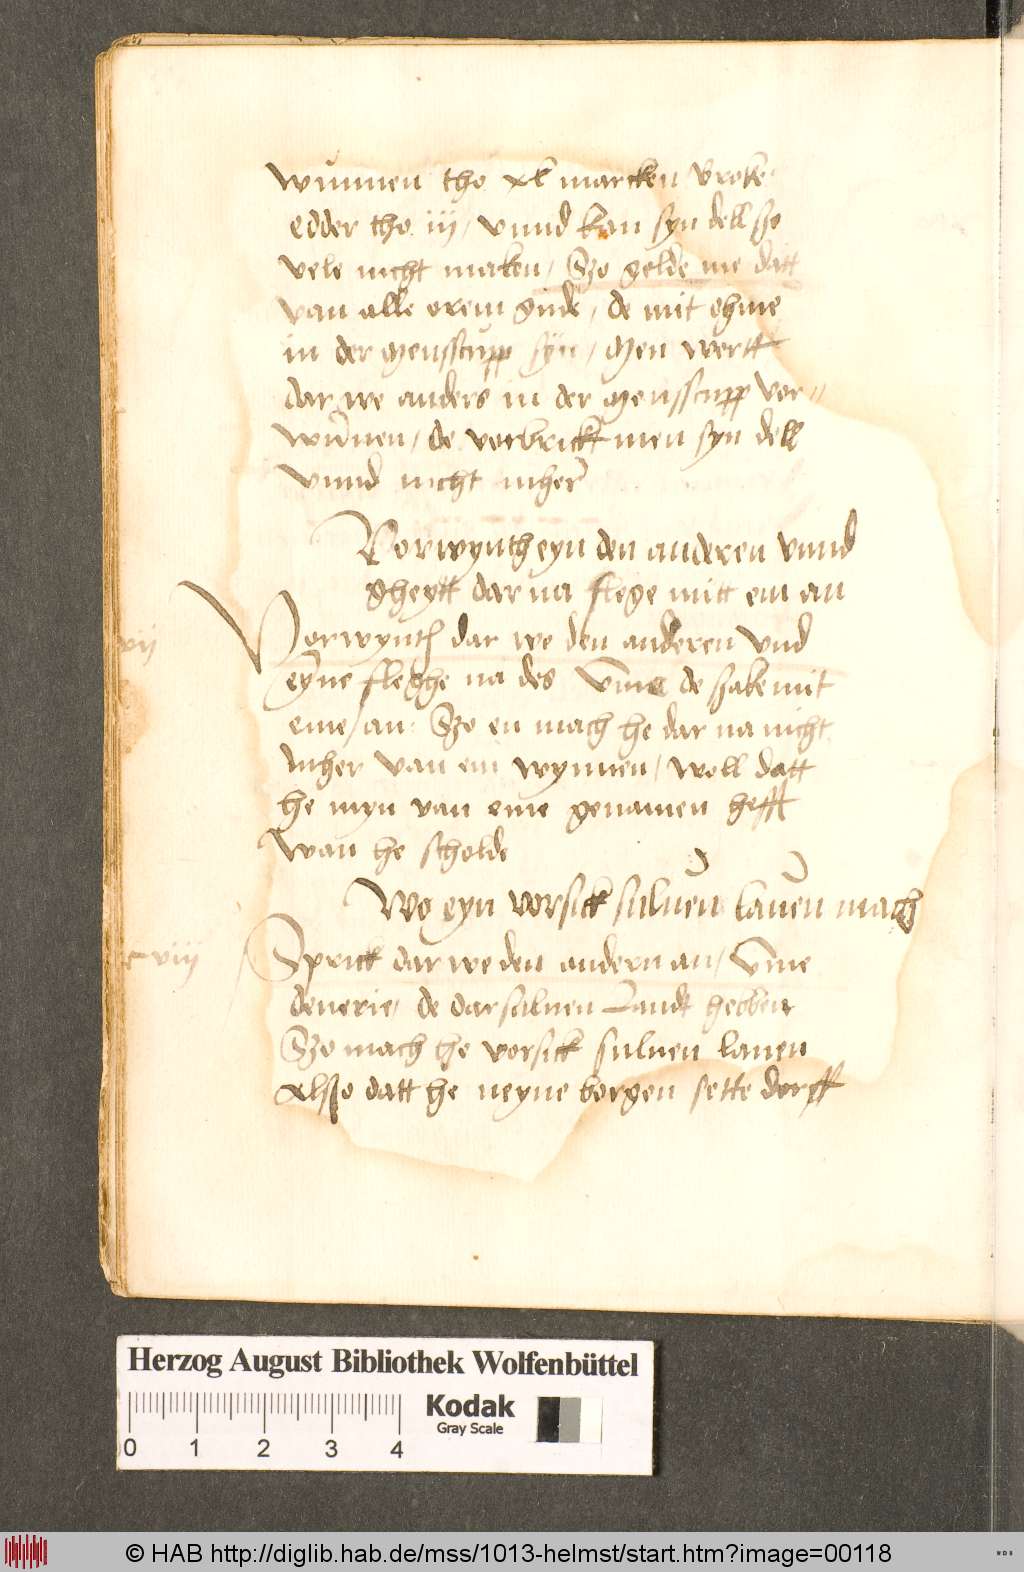 wunnen tho xl marcken broke
edder tho iij / vnnd kan syn dell so
vele nicht maken / Szo gelde me datt
van alle orem gude / de mit ehme
in der menscupp syn / Men wertt
dar we anders in der menscupp vor//
wunnen / de vorbrickt men syn dell
vnnd nicht mher
Vorwynth eyn den anderen vnnd
gheytt dar na flege mitt em an
vij
Vorwynth dar we den anderen vnd
eyne fleghe na des vmme de sake mit
eme / an Szo en mach he dar na nicht
mher van em wynnen / woll datt
he myn van eme genamen hefft
wan he scholde
Wo eyn vorsick suluen lauen mach
viij
Sprickt dar we den andern an / vmme
deuerie / de darsuluen Landt hebben
Szo mach he vorsick suluen lauen
Also datt he neyne borgen sette dorff
Herzog August Bibliothek Wolfenbüttel
0 1 2 3 4
Kodak
Gray Scale
© HAB http://diglib.hab.de/mss/1013-helmst/start.htm?image=00118